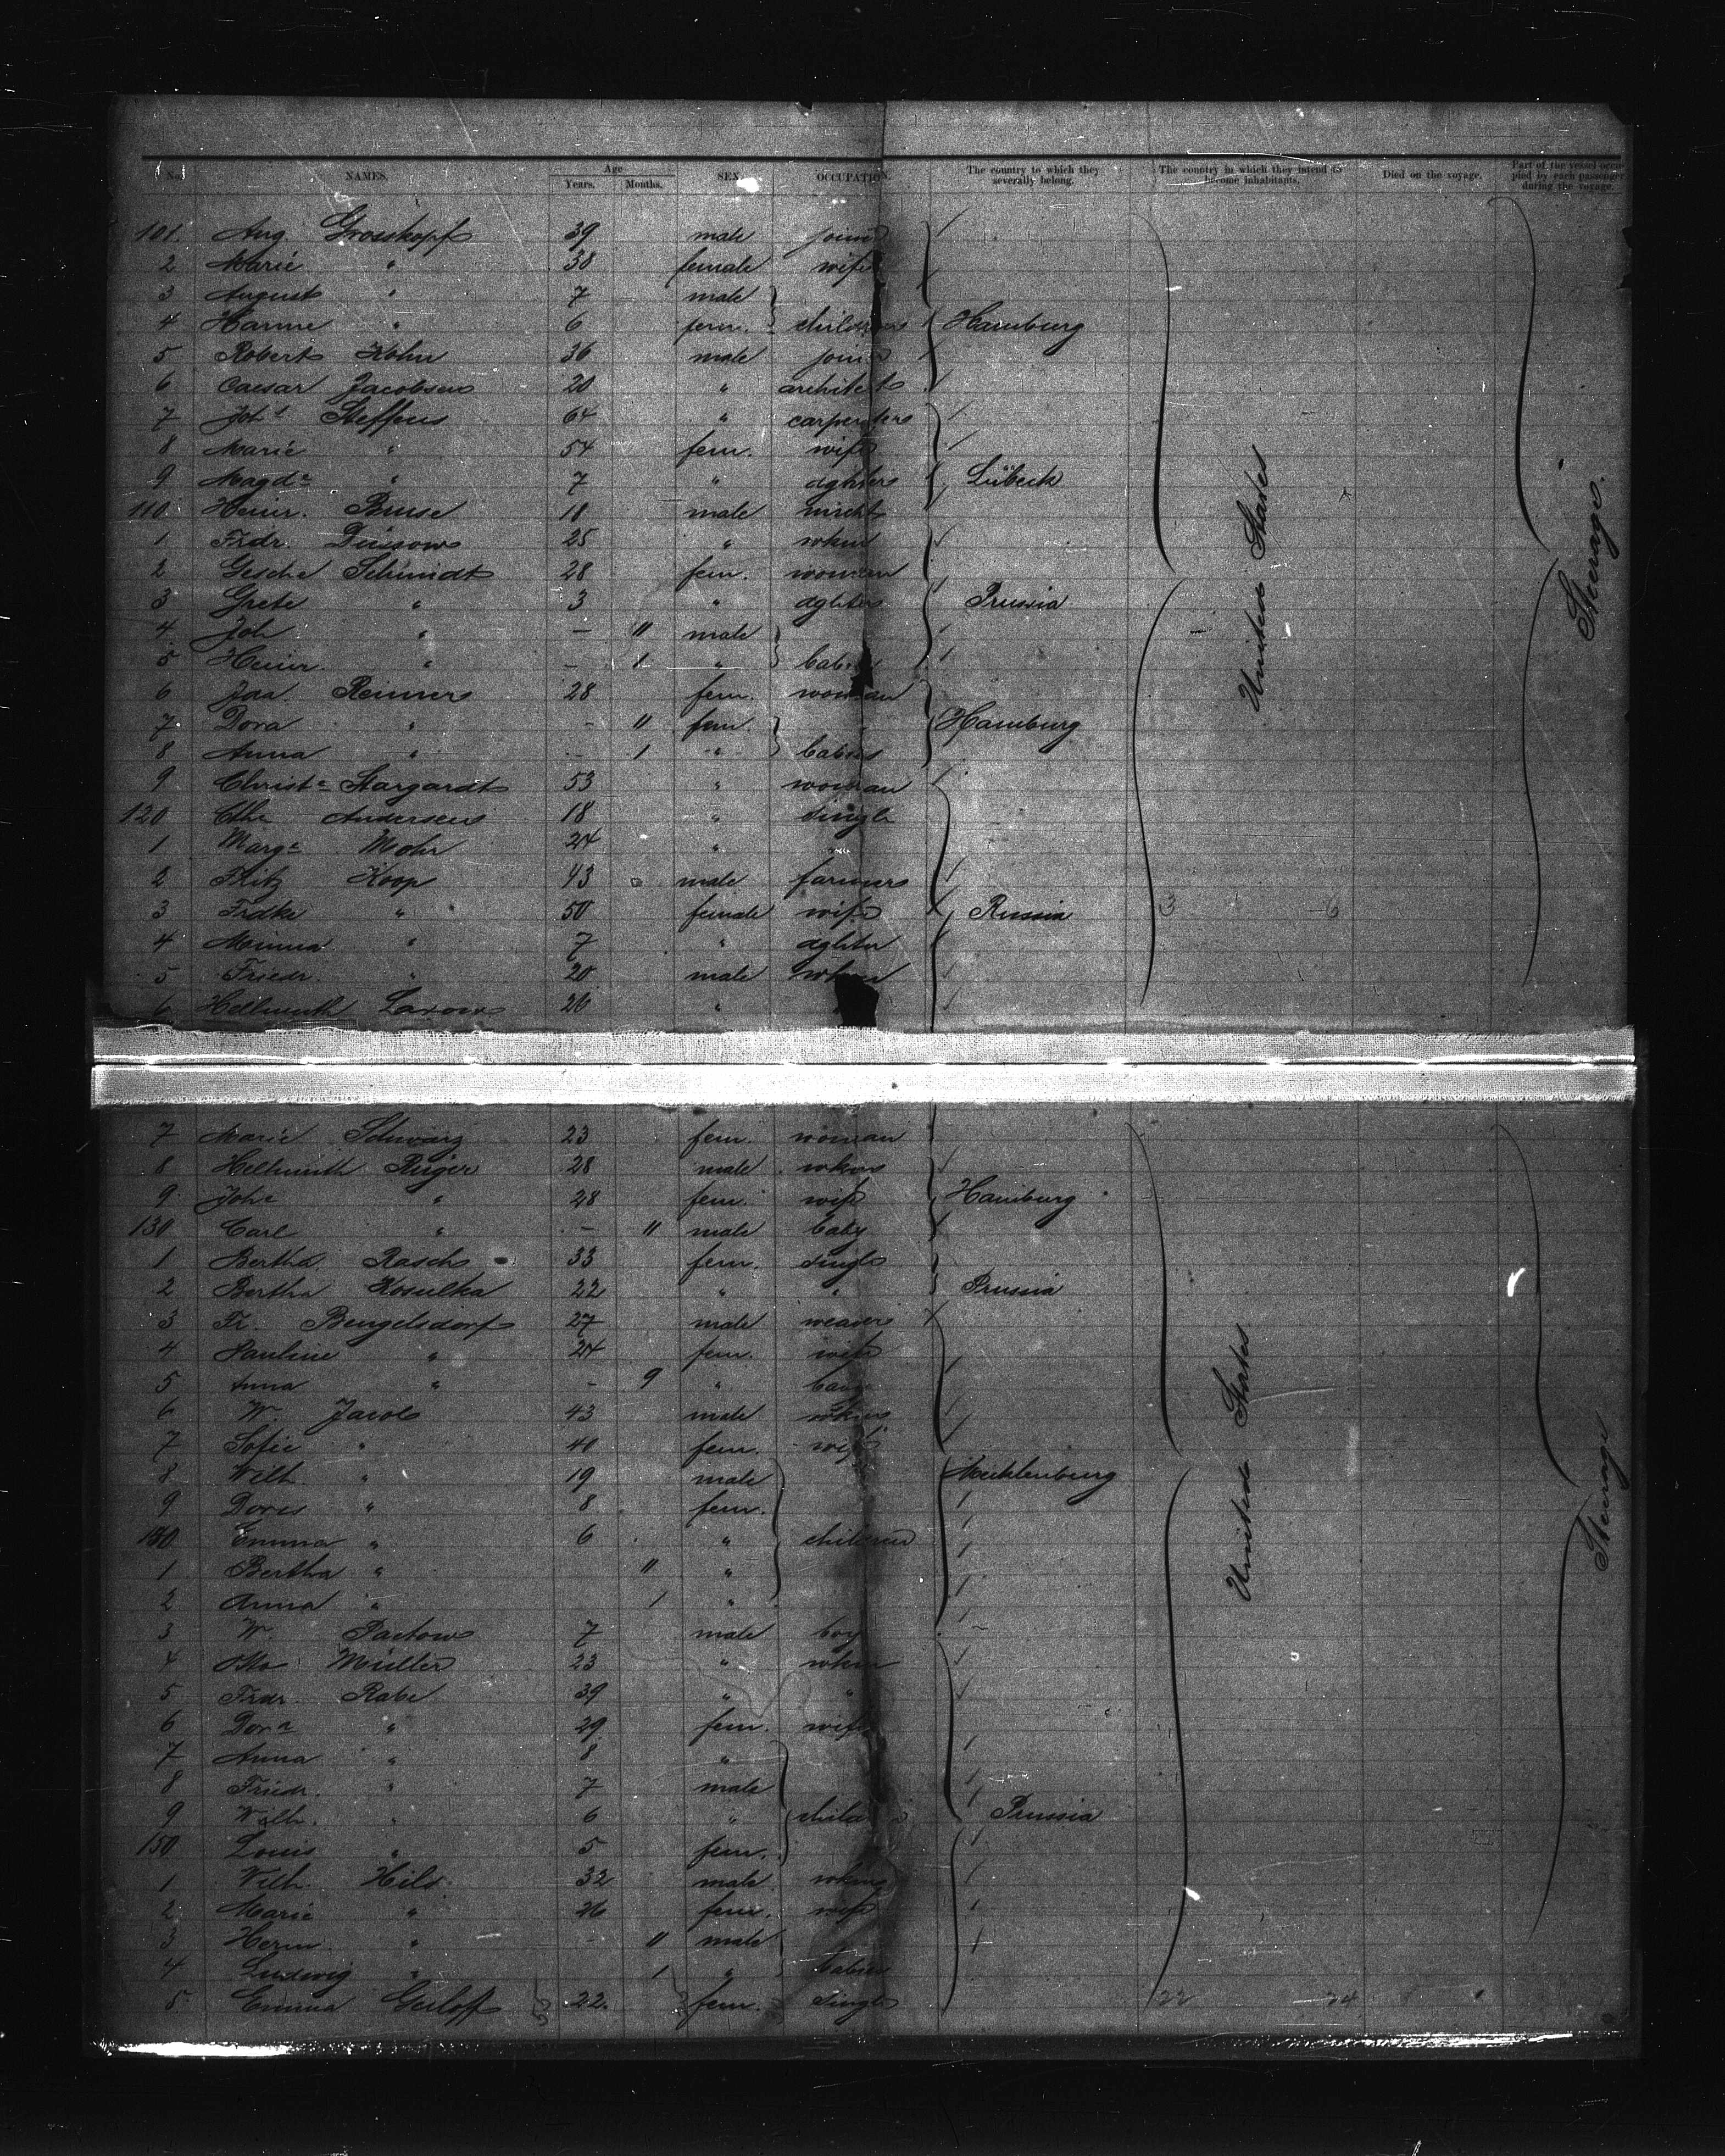 No. NAMES. Age Years. Months. SEX. OCCUPATION. The country to which they severally belong. The country in which they intend to become inhabitants. Died on the voyage. Part of the vessel occupied by each passenger during the voyage.
101. Aug. Grosskopf 39 male joiner
2 Marie " 38 female wife
3 August " 7 male
4 " 6 fem. children Hamburg
5 Robert Kohn 36 male joiner
6 Caesar Jacobsen 20 " architect
7 Joh. Steffens 64 " carpenter
8 Marie " 54 fem. wife
9 Magda " 7 " dghter Lübeck
110. Heinr. Bruse 18 male mircht
1 Frdr. Düssow 25 " wkm
2 Gesche Schmidt 28 fem. woman
3 Grete " 3 " dghter Prussia
4 Joh " - 11 male
5 Heinr. " - 1 " babies
6 Ida Reimers 28 fem. woman
7 Dora " - 11 fem. Hamburg
8 Anna " - 1 " babies
9 Christe Stargardt 53 " woman
120 Cthr Andersen 18 " single
1 Marge Mohr 24 " "
2 Fritz Koop 43 male farmer
3 Frdke " 50 female wife Russia
4 Minna " 7 " dghter
5 Friedr. " 20 male wkm
6 Hellmuth Laxow 26 "
United States
Steerage.
7 Marie Schwarz 23 fem. woman
8 Hellmuth Rüger 28 male wkm
9 Johe " 28 fem. wife Hamburg
130 Carl " - 11 male baby
1 Bertha Rasch 33 fem. single
2 Bertha Kosulka 22 " " Prussia
3 Fr. Bengelsdorf 27 male weaver
4 Pauline " 24 fem. wife
5 Anna " - 9 " baby
6 W. Jacobs 43 male wkm
7 Sofie " 40 fem. wife
8 Wilh. " 19 male Mecklenburg
9 Doris " 8 fem.
140 Emma " 6 " children
1 Bertha " 11 "
2 Anna " 1 "
3 W. Paetow 7 male boy
4 Otto Müller 23 " wkm
5 Frdr. Rabe 39 " "
6 Dora " 29 fem. wife
7 Anna " 8 "
8 Friedr. " 7 male
9 Wilh. " 6 " children Prussia
150 Louis " 5 fem.
1 Wilh. Hild 32 male wkm
2 Marie " 26 fem. wife
3 Herm. " - 11 male
4 Ludwig " 1 " babies
5 Emma Gerloff 22 fem. single
United States
Steerage